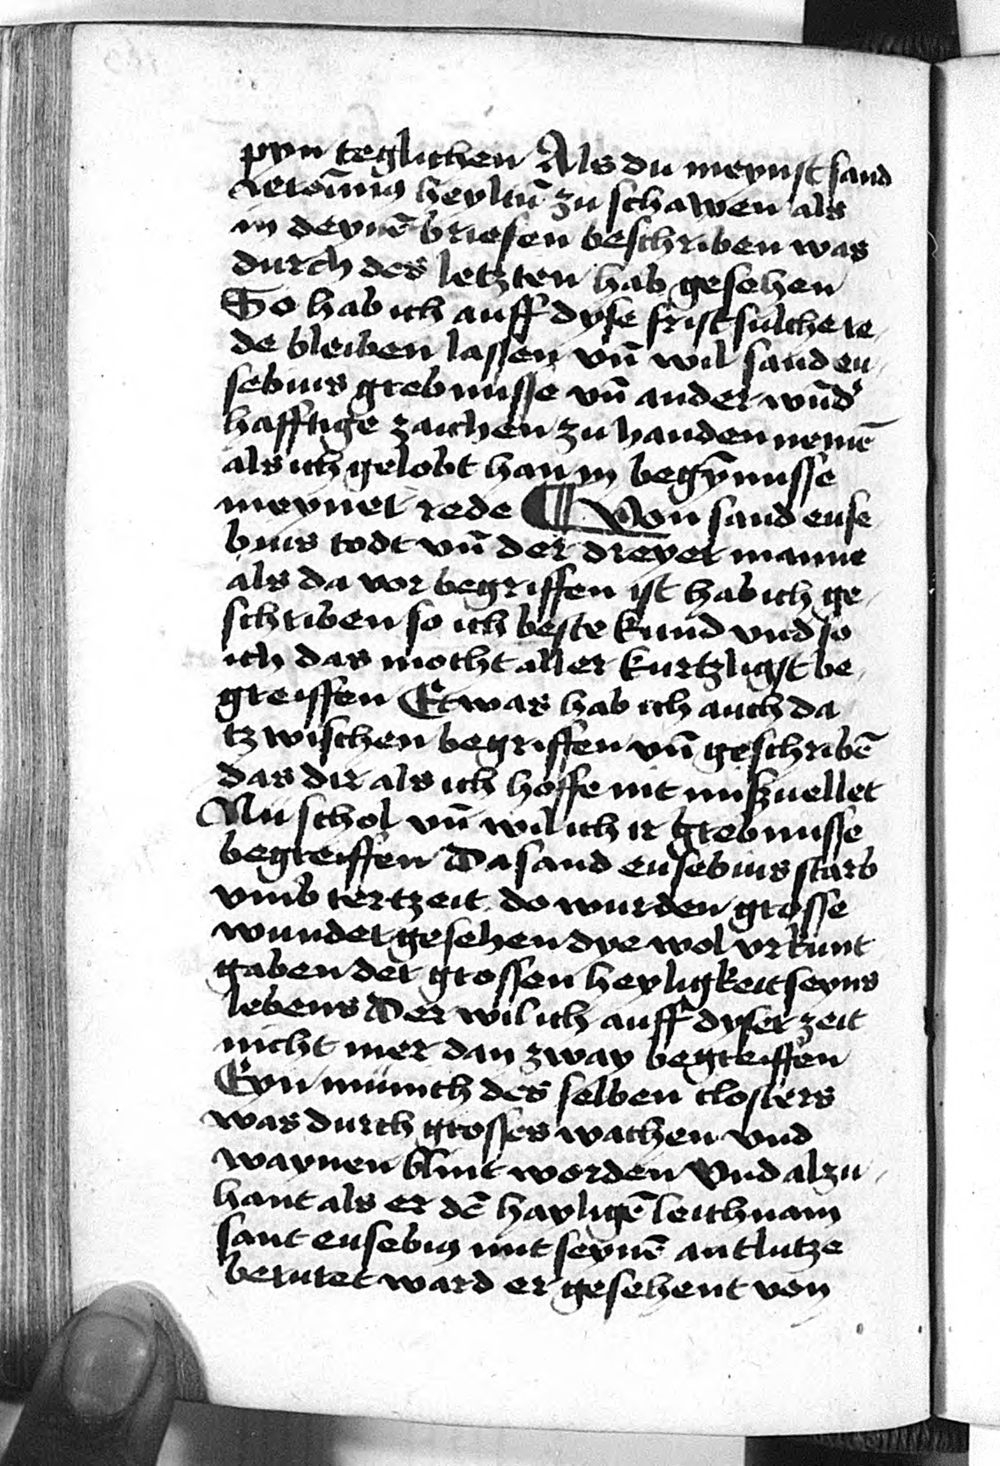 pyn teglichen Als du meynst sand
Jeronimꝰ heyltū zu schawen als
in deynē briefen beschriben was
durch des letzten hab gesehen
So hab ich auff dyse frist sulche re„
de bleiben lassen vn̄ wil sand eu„
sebius grebnusse vn̄ ander wūd̕
hafftige zaichen zu handen nemē
als ich gelobt han in begȳnusse
meyner rede ¶ Von sand euse
bius todt vn̄ der dreyer manne
als da vor begriffen ist hab ich ge„
schriben so ich beste kund vnd so
ich das mocht aller kurtzligst be„
greiffen Etwas hab ich auch da
tzwischen begriffen vn̄ geschribē
das dir als ich hoffe nit misȝuellet
Nu schol vn̄ wil ich ir grebnusse
begreiffen Da sand eusebius starb
vmb tertzeit do wurden grosse
wunder gesehen dye wol vrkunt
gaben der grossen heyligkeit seyns
lebens Der wil ich auff dyser zeit
nicht mer dan zway begreiffen
Eyn münich des selben closters
was durch grosses wachen vnd
waynen blint worden Vnd alzu„
hant als er dē hayligē leichnam
sant eusebiꝰ mit seynē antlutze
berüret ward er gesehent von